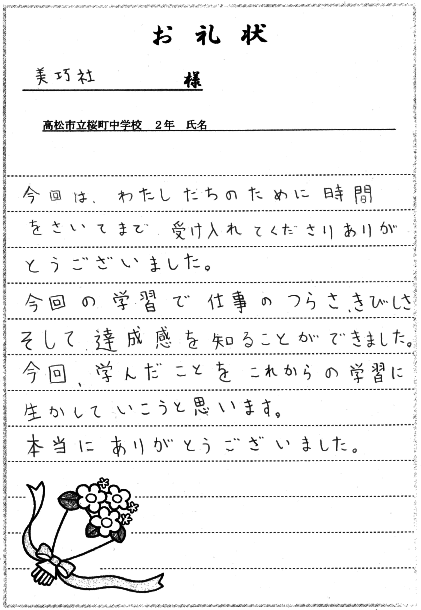 お礼状
美巧社 様
高松市立桜町中学校 2年 氏名
今回は、わたしたちのために時間
をさいてまで 受け入れてくださりありが
とうございました。
今回の学習で仕事のつらさ、きびしさ
そして達成感を知ることができました。
今回、学んだことをこれからの学習に
生かしていこうと思います。
本当にありがとうございました。